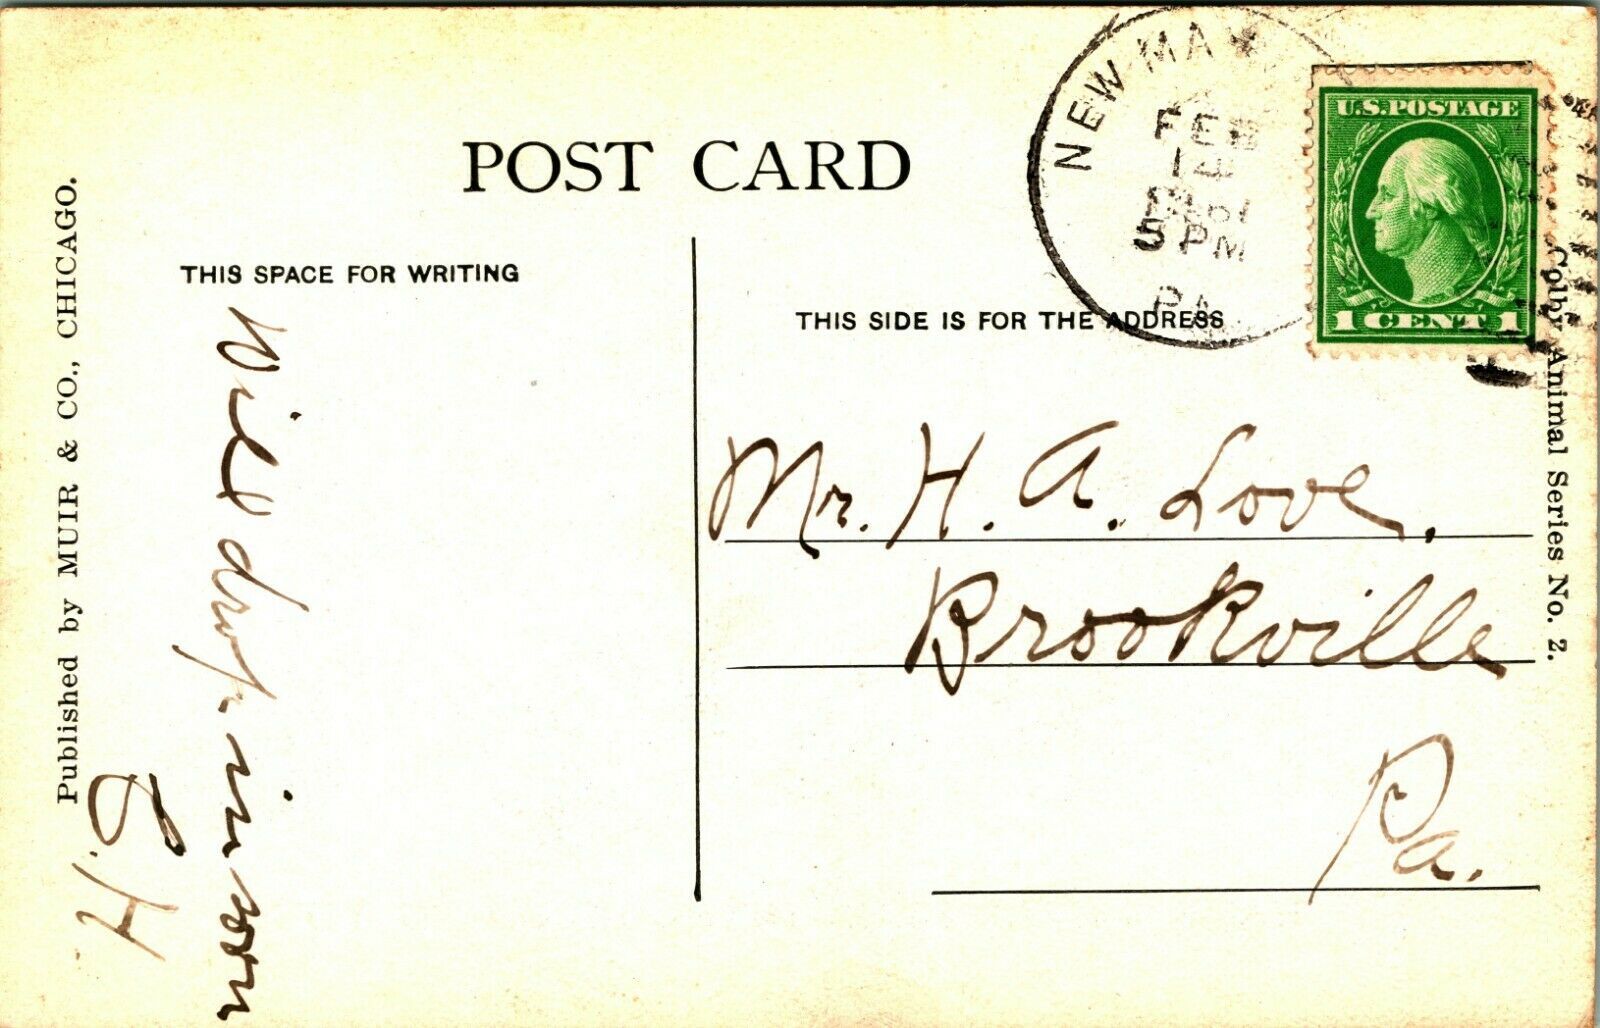 POST CARD
THIS SPACE FOR WRITING
THIS SIDE IS FOR THE ADDRESS
Published by MUIR & CO., CHICAGO.
Will drop in soon
H.
NEW MA
FEB
14
5 PM
PA
U.S. POSTAGE
1 CENT 1
Mr. H. A. Love.
Brookville
Pa.
Colby Animal Series No. 2.